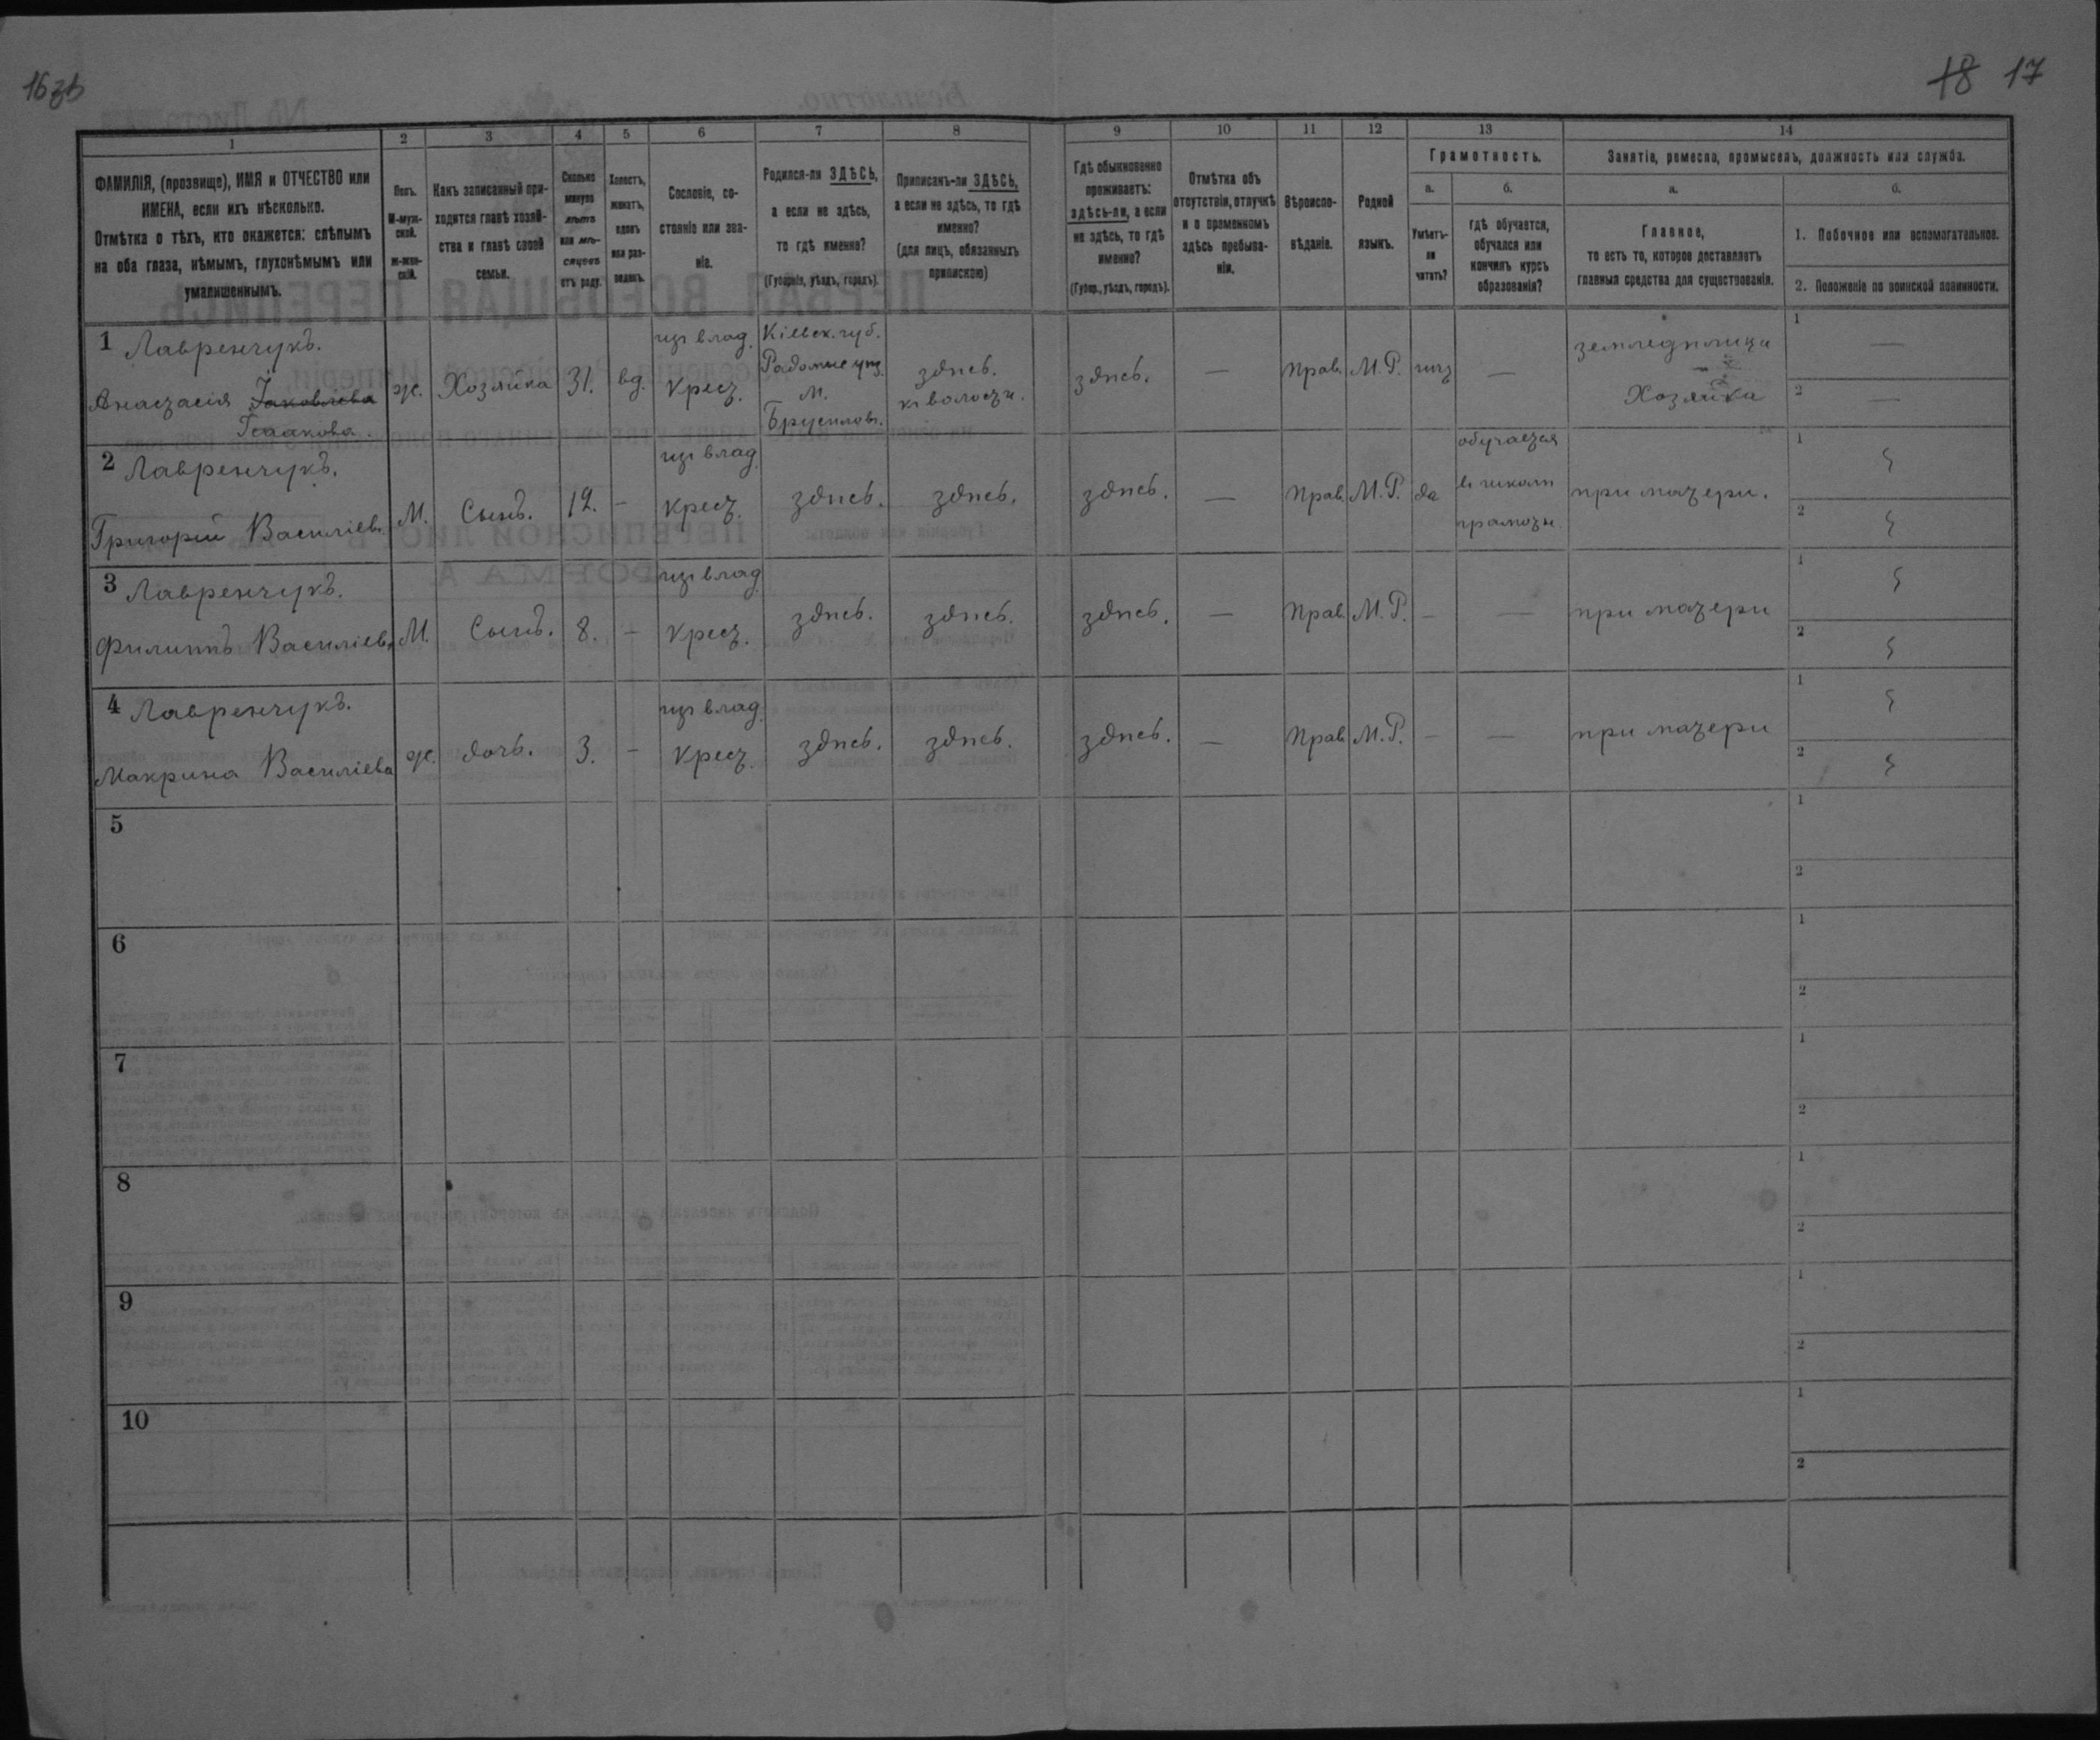 16зв
18 17
1
2
3
4
5
6
7
8
9
10
11
12
13
14
ФАМИЛІЯ, (прозвище), ИМЯ и ОТЧЕСТВО или
ИМЕНА, если ихъ нѣсколько.
Отмѣтка о тѣхъ, кто окажется: слѣпымъ
на оба глаза, нѣмымъ, глухонѣмымъ или
умалишеннымъ.
Полъ.
М-муж-
ской.
ж-жен-
скій.
Какъ записанный при-
ходится главѣ хозяй-
ства и главѣ своей
семьи.
Сколько
минуло
лѣтъ
или мѣ-
сяцевъ
отъ роду.
Холостъ,
женатъ,
вдовъ
или раз-
веденъ.
Сословіе, со-
стояніе или зва-
ніе.
Родился-ли ЗДѢСЬ,
а если не здѣсь,
то гдѣ именно?
(Губернія, уѣздъ, городъ).
Приписанъ-ли ЗДѢСЬ,
а если не здѣсь, то гдѣ
именно?
(для лицъ, обязанныхъ
припискою)
Гдѣ обыкновенно
проживаетъ:
здѣсь-ли, а если
не здѣсь, то гдѣ
именно?
(Губер., уѣздъ, городъ).
Отмѣтка объ
отсутствіи, отлучкѣ
и о временномъ
здѣсь пребыва-
ніи.
Вѣроиспо-
вѣданіе.
Родной
языкъ.
Грамотность.
а.
б.
Умѣетъ-
ли
читать?
гдѣ обучается,
обучался или
кончилъ курсъ
образованія?
Занятіе, ремесло, промыселъ, должность или служба.
а.
б.
Главное,
то есть то, которое доставляетъ
главныя средства для существованія.
1. Побочное или вспомогательное.
2. Положеніе по воинской повинности.
1 Лавренчукъ.
Анастасія Іаковлева
Ісаакова.
ж. Хозяйка 31. вд.
из влад.
крест.
Кіевск. губ.
Радомыс. уѣз.
м.
Брусиловъ.
здѣсь.
въ волости.
здѣсь. — Прав. М.Р. —
земледѣлица
Хозяйка
1 —
2 —
2 Лавренчукъ.
Григорій Василіев.
М. Сынъ. 12. -
из влад.
крест.
здѣсь. здѣсь. здѣсь. — Прав. М.Р. да
обучается
въ школѣ
грамоты.
при матери.
1
2
3 Лавренчукъ.
Филиппъ Василіев.
М. Сынъ. 8. -
из влад.
крест.
здѣсь. здѣсь. здѣсь. — Прав. М.Р. - — при матери
1
2
4 Лавренчукъ.
Макрина Василіева
ж. дочь. 3. -
из влад.
крест.
здѣсь. здѣсь. здѣсь. — Прав. М.Р. - — при матери
1
2
5
1
2
6
1
2
7
1
2
8
1
2
9
1
2
10
1
2